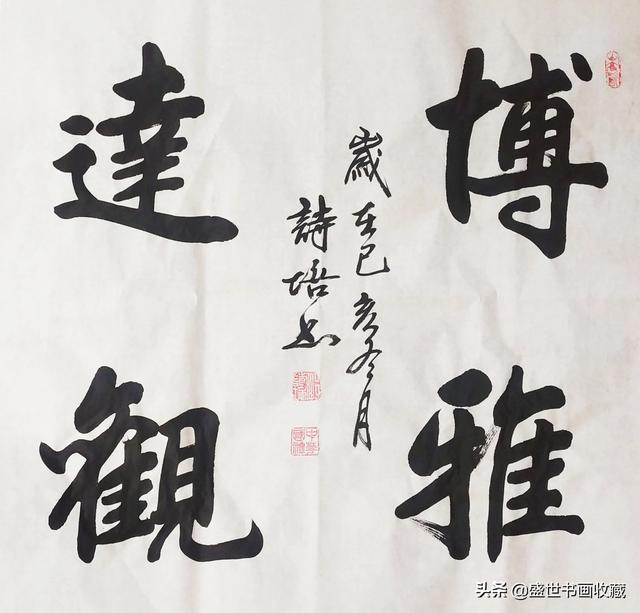 博雅
達觀
歲在己亥冬月
詩培書
头条 @盛世书画收藏